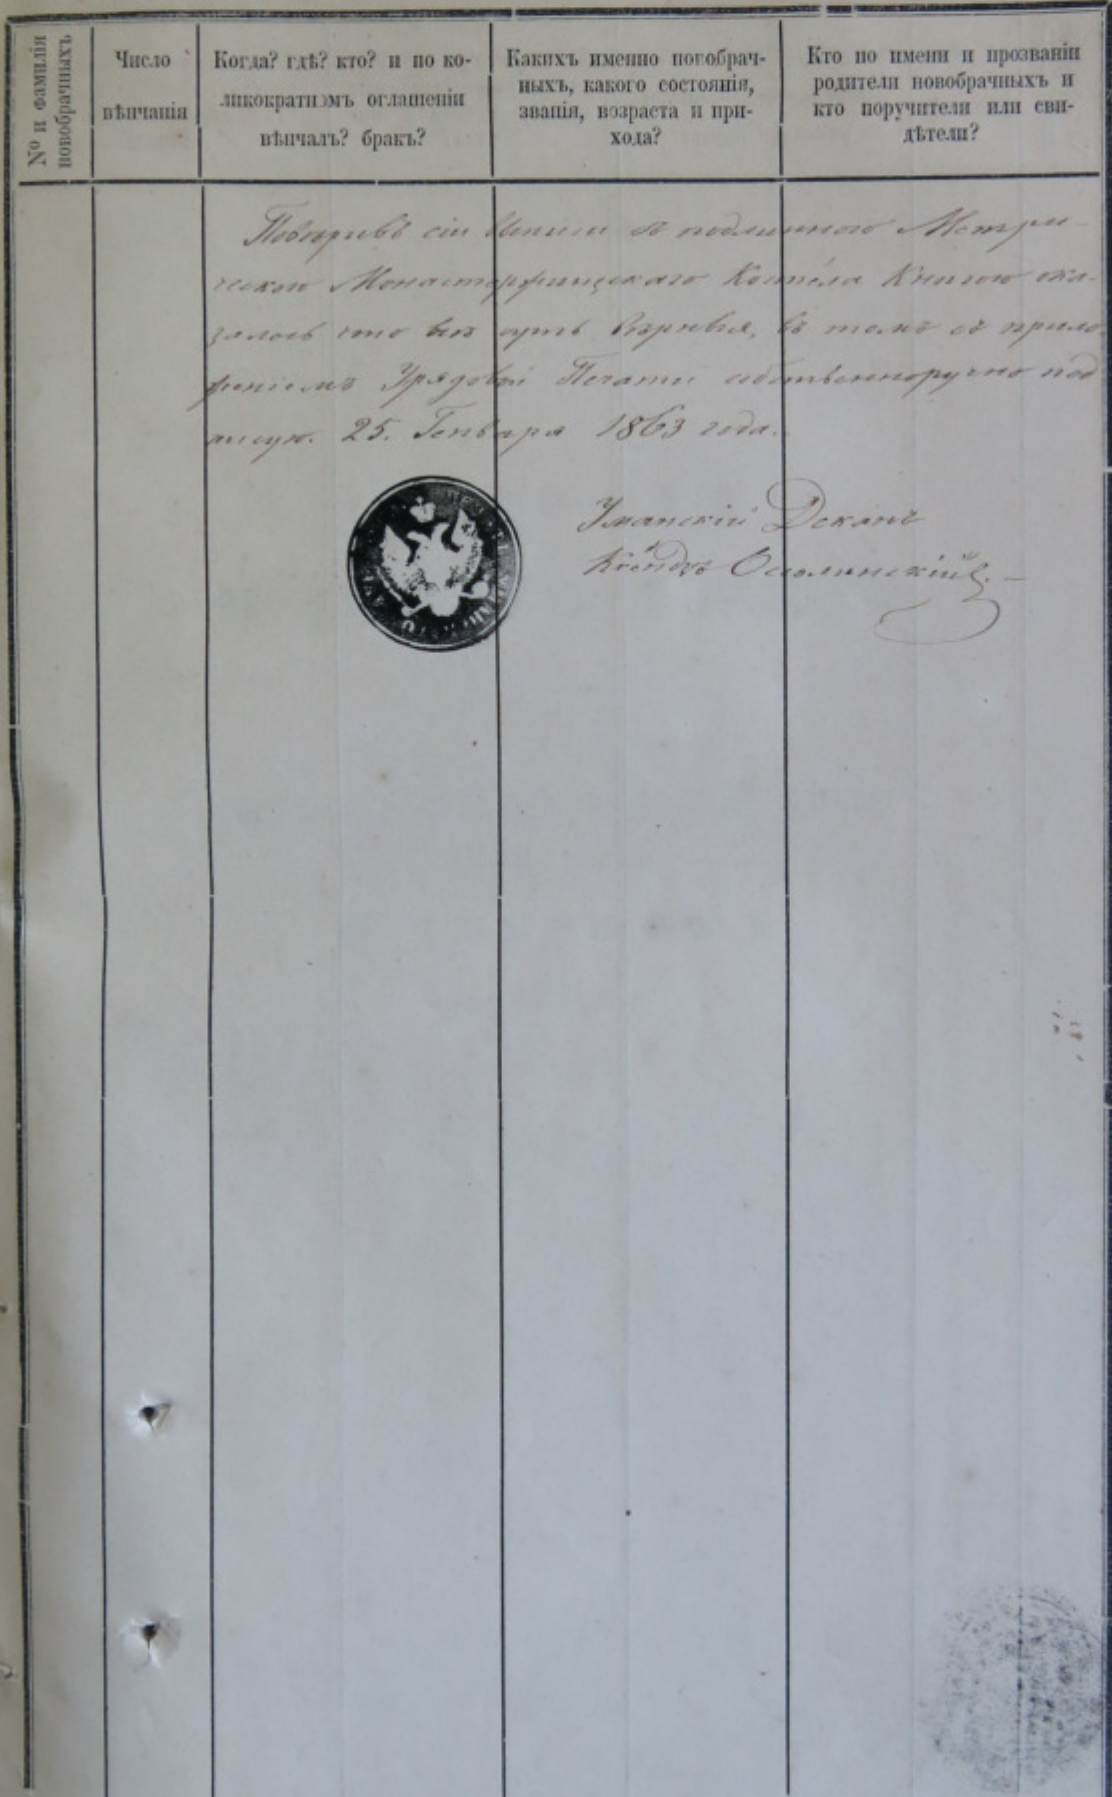 № и фамилія
новобрачныхъ
Число
вѣнчанія
Когда? гдѣ? кто? и по ко-
ликократномъ оглашеніи
вѣнчалъ? бракъ?
Какихъ именно новобрач-
ныхъ, какого состоянія,
званія, возраста и при-
хода?
Кто по имени и прозванію
родители новобрачныхъ и
кто поручители или сви-
дѣтели?
Повѣривъ сіи съ подлинною Метри-
ческою Монастырищскаго Костёла Книгою ока-
залось что суть вѣрныя, въ томъ съ прило-
женіемъ Урядовой Печати собственноручно под
писую. 25. Генваря 1863 года.
Уманскій Деканъ
Ксёндзъ